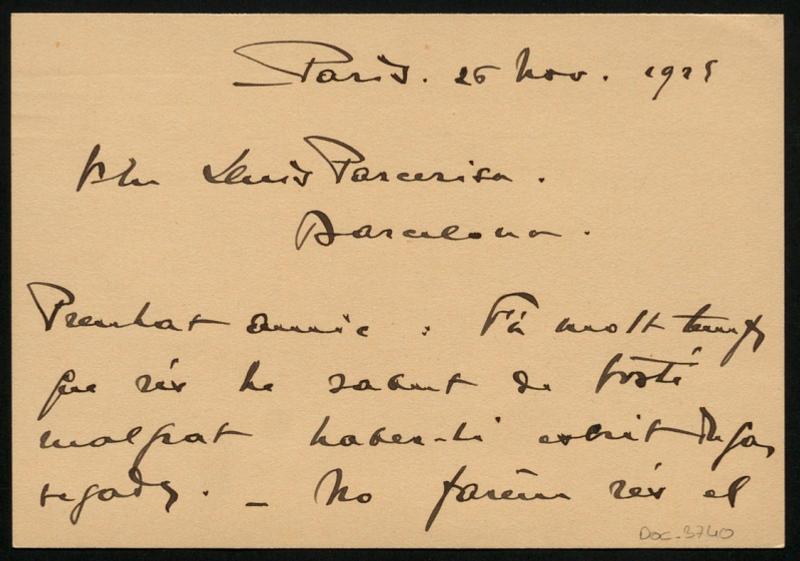 Paris. 26 Nov. 1925
Lluis Parcerisa.
Barcelona.
Preuhat amic. Fá molt temps
que rés he sabut de Vosté
malgrat haber-li escrit
vegades. - No farém rés el
Doc. 3740